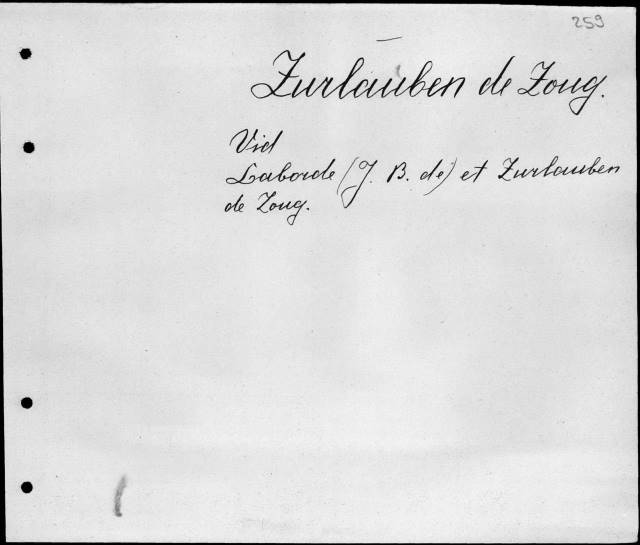 259
Zurlauben de Zoug.
Vid
Laborde (J. B. de) et Zurlauben
de Zoug.